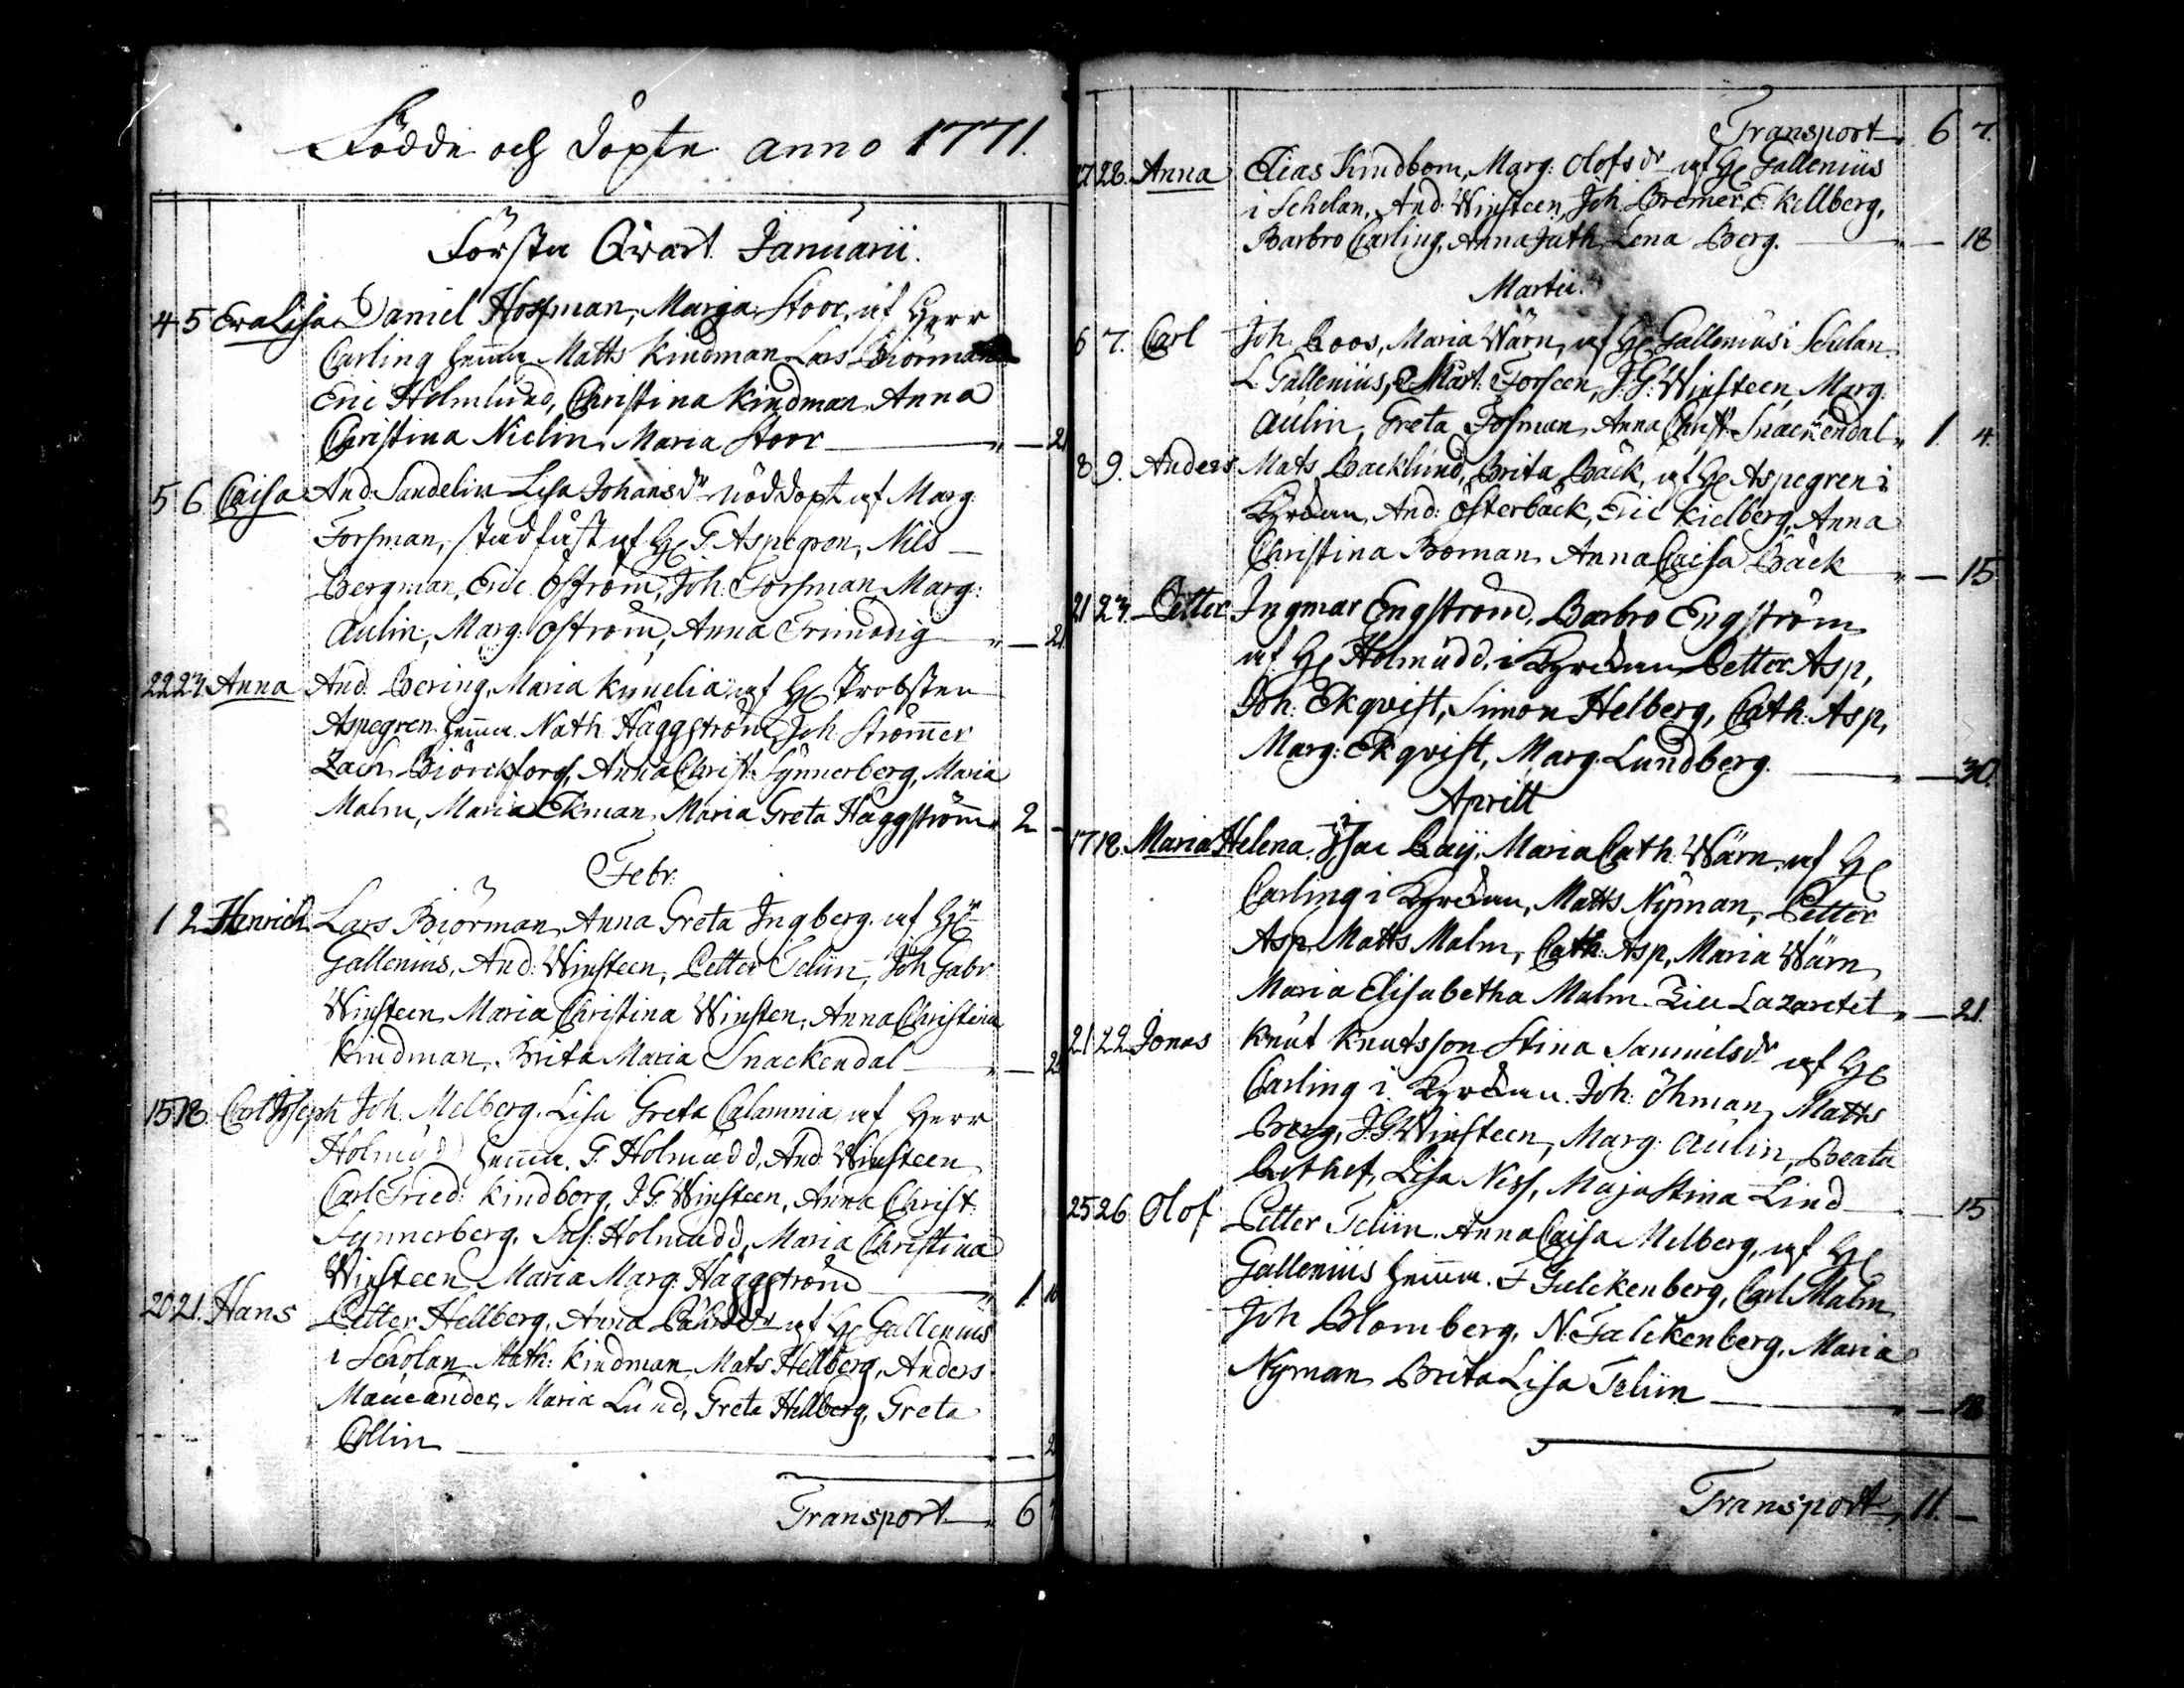 Födde och döpte anno 1771.
Första Qvart. Januarii.
4 5 Eva Lisa Daniel Hoffman, Marja Stoor, af Herr
Carling hemma Matts Kindman Lars Biörman
Eric Holmlund, Christina Kindman Anna
Christina Nielin, Maria Stoor
5 6 Caisa And: Sandelin Lisa Johansdr nöddopt af Marg:
Forsman, stadfäst af H. G. Aspegren, Nils
Bergman, Eric Öström, Joh: Forsman Marg:
Aulin, Marg: Öström, Anna Frimodig
22 23. Anna And. Bering, Maria af H. Probsten
Aspegren hemma. Nath: Häggström, Joh. Strömmer
Zach. Biörckfors, Anna Christ: Synnerberg, Maria
Malm, Maria Ekman, Maria Greta Häggström 2 -
Febr:
1 2 Henrich Lars Biörman, Anna Greta Ingberg. af H.
Gallenius, And: Winsteen, Petter Telin, Joh Gabr
Winsteen Maria Christina Winsten, Anna Christina
Kindman, Brita Maria Snackendal
15 18. Carl Joseph Joh. Melberg. Lisa Greta Calamnia af Herr
Holmudd hemma. G. Holmudd, And Winsteen
Carl Fried: Kindborg, J. G. Winsteen, Anna Christ:
Synnerberg, Holmudd, Maria Christina
Winsteen Maria Marg: Häggström 1.
20 21. Hans Petter Hellberg, Anna af H. Gallenius
i Scholan, Math: Kindman, Mats Hellberg, Anders
Maria Lund, Greta Hellberg, Greta
Collin
Transport 6
Transport 6 7.
28. Anna Elias Kindbom, Marg: Olofsdr af H. Gallenius
i Scholan, And: Winsteen, Joh. Bremer, E. Kellberg,
Barbro Carling, Anna Juth, Lena Berg. — 18
Martii.
6 7. Carl Joh. Boos, Maria Wärn, af H. Gallenius i Scholan
L Gallenius, Mårt: Forseen, J. G. Winsteen, Marg:
Aulin, Greta Forsman Anna Christ: Snackendal 1. 4.
8 9. Anders Mats Backlund, Brita Bäck, af H. Aspegren i
Kyrckan, And: Österbäck, Eric Kielberg, Anna
Christina Boman Anna Caisa Bäck — 15
21 23. Petter Ingmar Engström, Barbro Engström
af H. Holmudd, i Kyrckan Petter Asp,
Joh: Ekqvist, Simon Helberg, Cath: Asp,
Marg: Ekqvist, Marg. Lundberg. — 30.
Aprill
17 18. Maria Helena. Isac Maria Cath. Wärn af H.
Carling i Kyrckan, Matts Nyman, Petter
Asp, Matts Malm, Cath: Asp, Maria Wärn
Maria Elisabetha Malm. Lazaretet — 21.
21 22 Jonas Knut Knutsson Stina Samuelsdr af H.
Carling i Kyrckan. Joh: Öhman, Matts
Berg, J. G. Winsteen, Marg: Aulin, Beata
Lisa Ness, Maja Stina Lind — 15
25 26 Olof Petter Telin. Anna Caisa Melberg, af H.
Gallenius hemma. F Falckenberg, Carl Malm
Joh Blomberg, N. Falckenberg, Maria
Nyman Brita Lisa Telin — 18
Transport 11. —